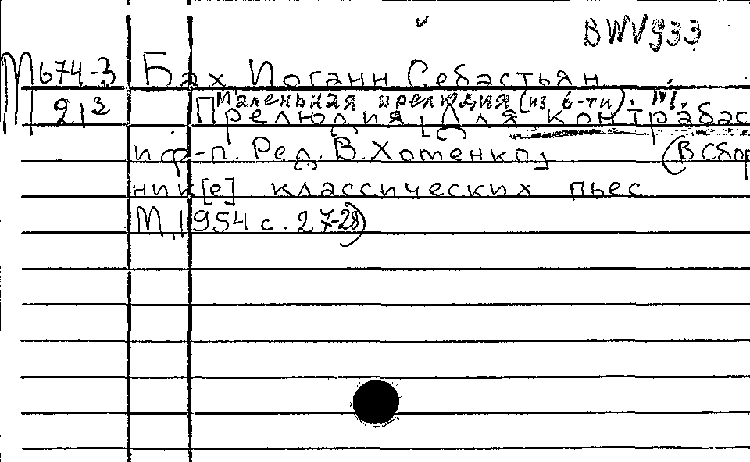 BWV 933
М 674-3 Бах Иоганн Себастьян
Маленькая прелюдия (из 6-ти). №1.
213 Прелюдия. Для контрабас
и ф-п. Ред. В. Хоменко, (В сбор
ник[е] классических пьес
М., 1954 с. 27-28)